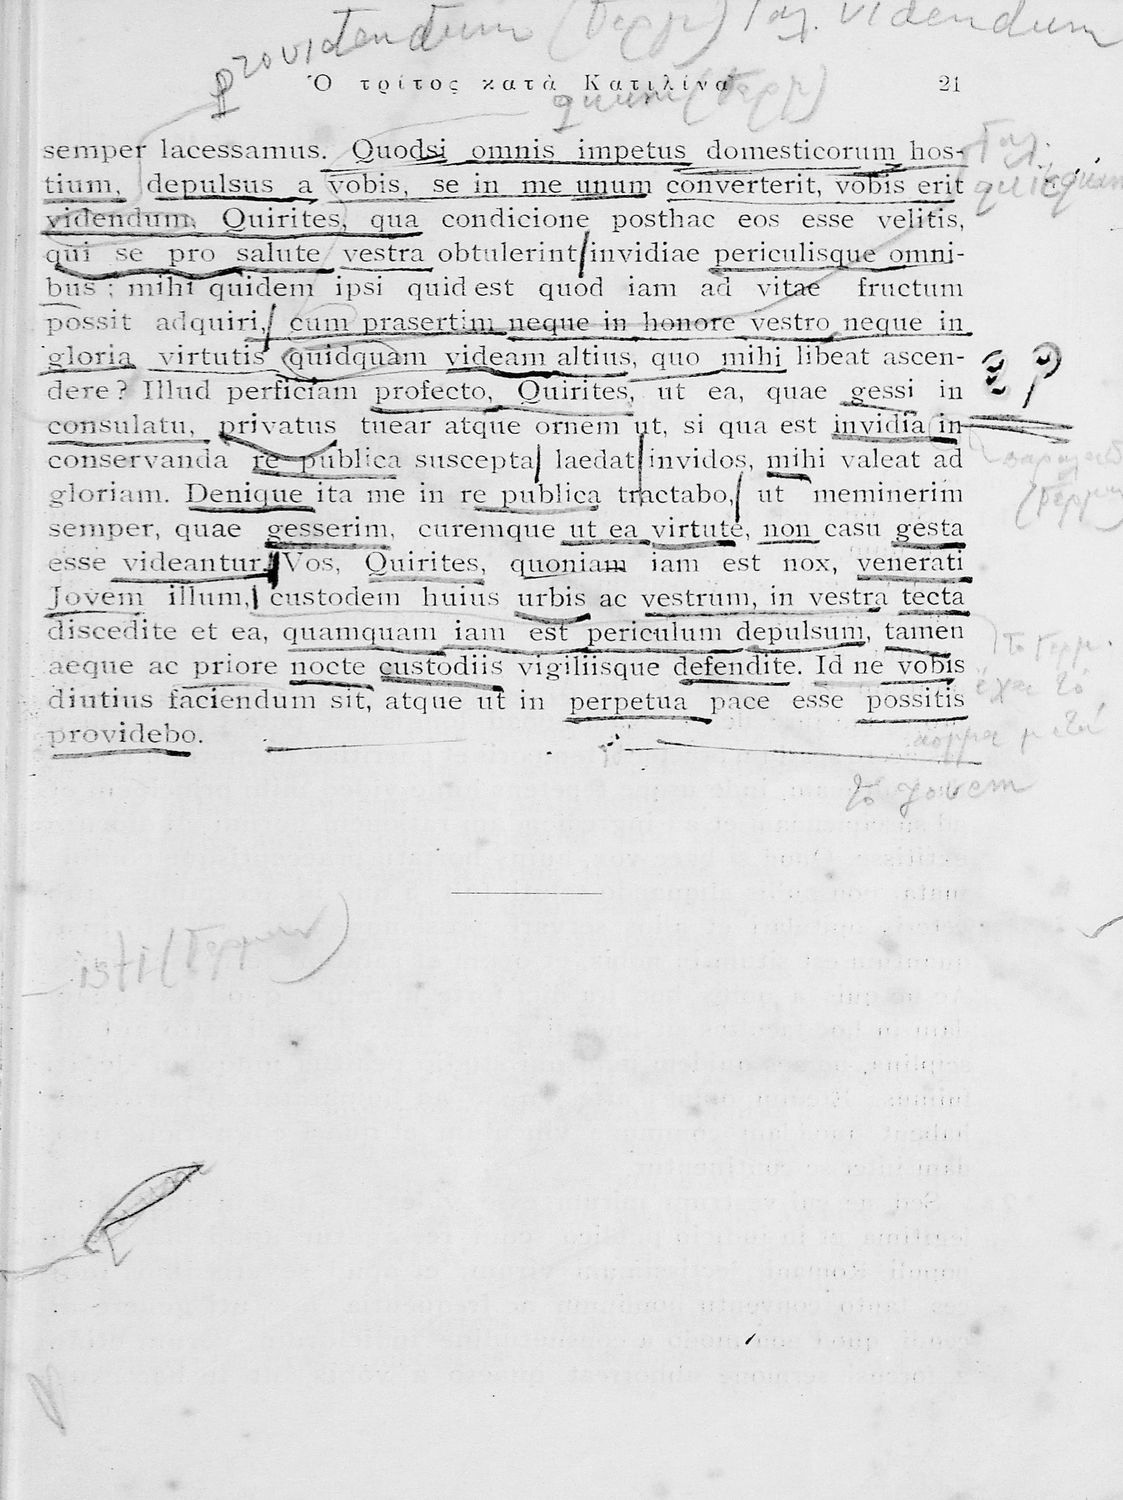 providendum (Γερμ) Γαλ. videndum
Ὁ τρίτος κατὰ Κατιλίνα 21
quum (Γερμ)
semper lacessamus. Quodsi omnis impetus domesticorum hos-
tium, depulsus a vobis, se in me unum converterit, vobis erit
videndum, Quirites, qua condicione posthac eos esse velitis,
qui se pro salute vestra obtulerint invidiae periculisque omni-
bus ; mihi quidem ipsi quid est quod iam ad vitae fructum
possit adquiri, cum prasertim neque in honore vestro neque in
gloria virtutis quidquam videam altius, quo mihi libeat ascen-
dere ? Illud perficiam profecto, Quirites, ut ea, quae gessi in
consulatu, privatus tuear atque ornem ut, si qua est invidia in
conservanda re publica suscepta laedat invidos, mihi valeat ad
gloriam. Denique ita me in re publica tractabo, ut meminerim
semper, quae gesserim, curemque ut ea virtute, non casu gesta
esse videantur. Vos, Quirites, quoniam iam est nox, venerati
Jovem illum, custodem huius urbis ac vestrum, in vestra tecta
discedite et ea, quamquam iam est periculum depulsum, tamen
aeque ac priore nocte custodiis vigiliisque defendite. Id ne vobis
diutius faciendum sit, atque ut in perpetua pace esse possitis
providebo.
Γαλ.
quicquam
(Γερμ
τὸ Γερμ.
ἔχει τὸ
κομμα μετά
τὸ Jovem
isti (Γερμαν)